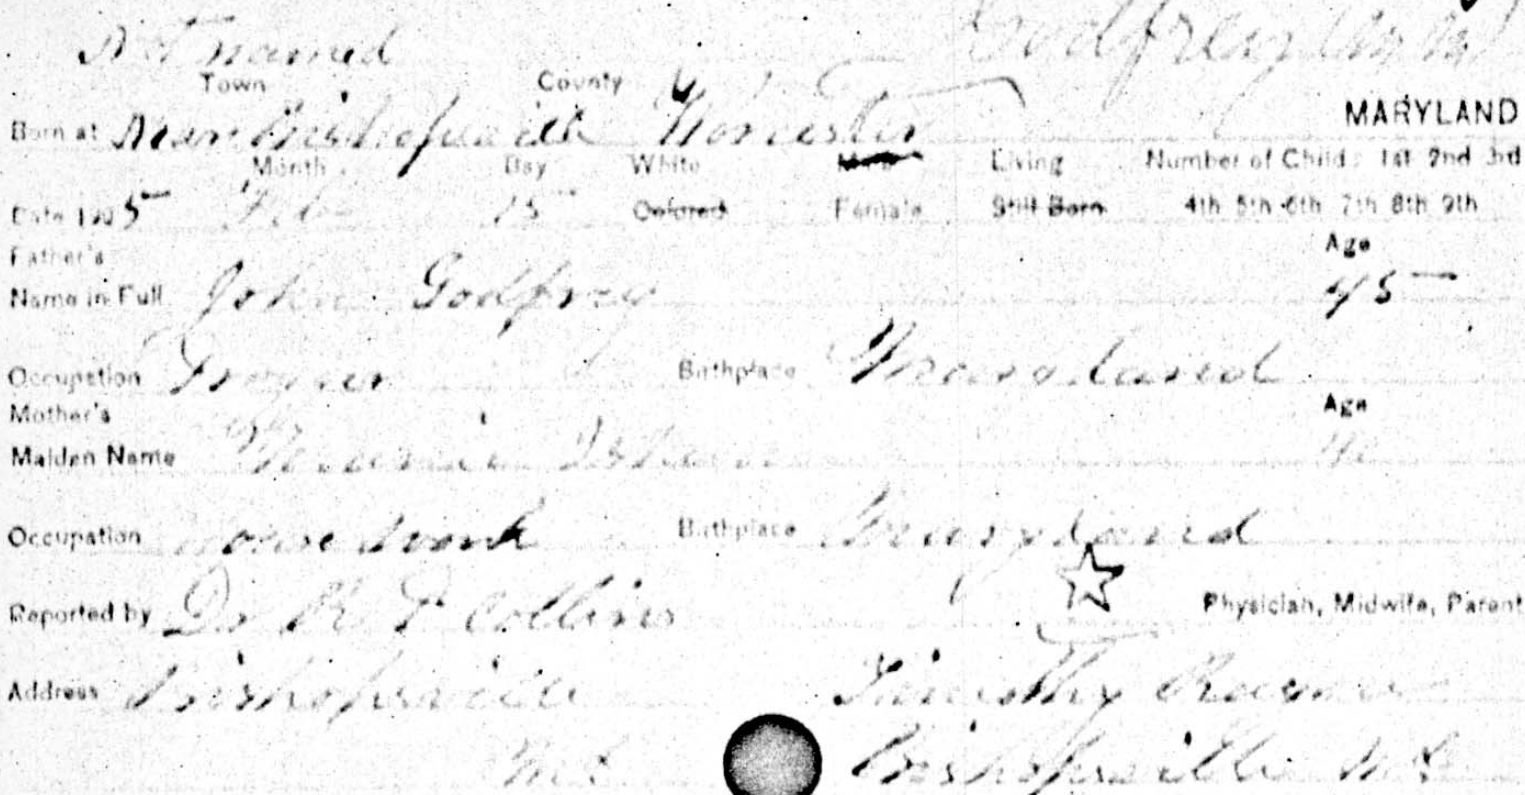 Not named Godfrey
Town County
Born at Near Bishopville Worcester MARYLAND
Month Day White Male Living Number of Child: 1st 2nd 3rd
Date 1905 Feb 15 Colored Female Still Born 4th 5th 6th 7th 8th 9th
Father's Age
Name in Full John Godfrey 45
Occupation Birthplace Maryland
Mother's Age
Maiden Name
Occupation House work Birthplace Maryland
Reported by Dr R P Collins Physician, Midwife, Parent
Address Bishopville Timothy
Md Bishopville Md